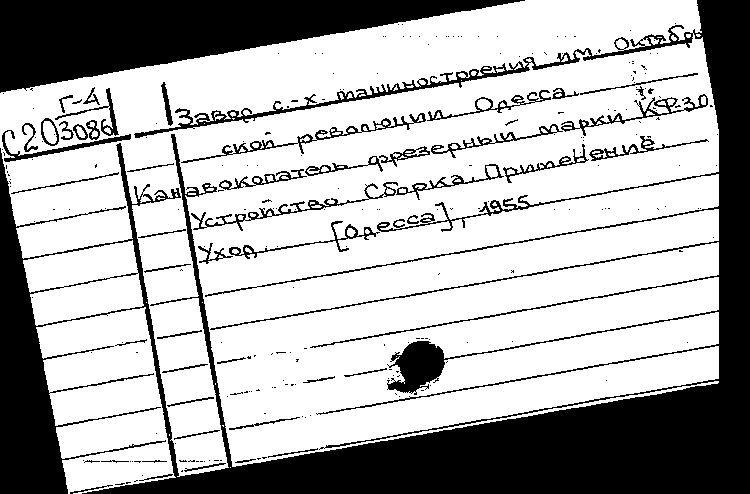 Г-4
С203086
Завод с.-х. машиностроения им. Октябрь
ской революции. Одесса.
Канавокопатель фрезерный марки КФ-30.
Устройство. Сборка. Применение.
Уход. [Одесса], 1955